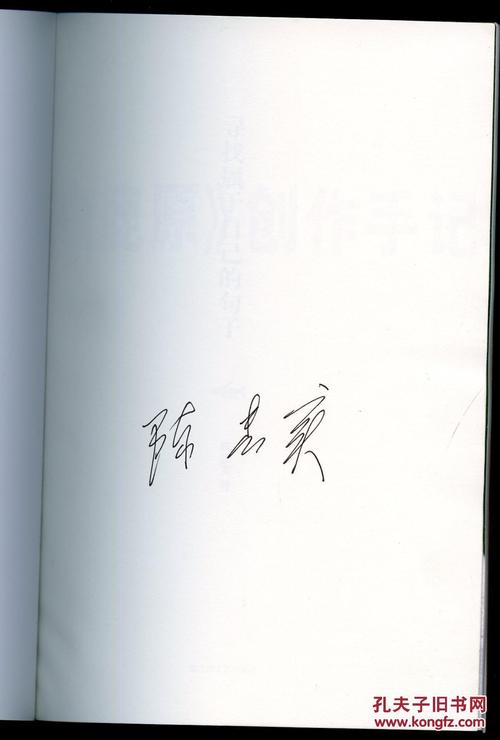 寻找属于自己的句子
原》创作手记
陈忠实
孔夫子旧书网
www.kongfz.com